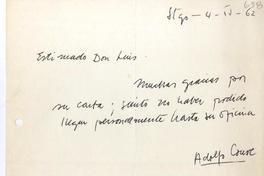 658
Stgo - 4 - IV - 62
Estimado Don Luis.
Muchas gracias por
su carta; siento no haber podido
llegar personalmente hasta su oficina
Adolfo Couve